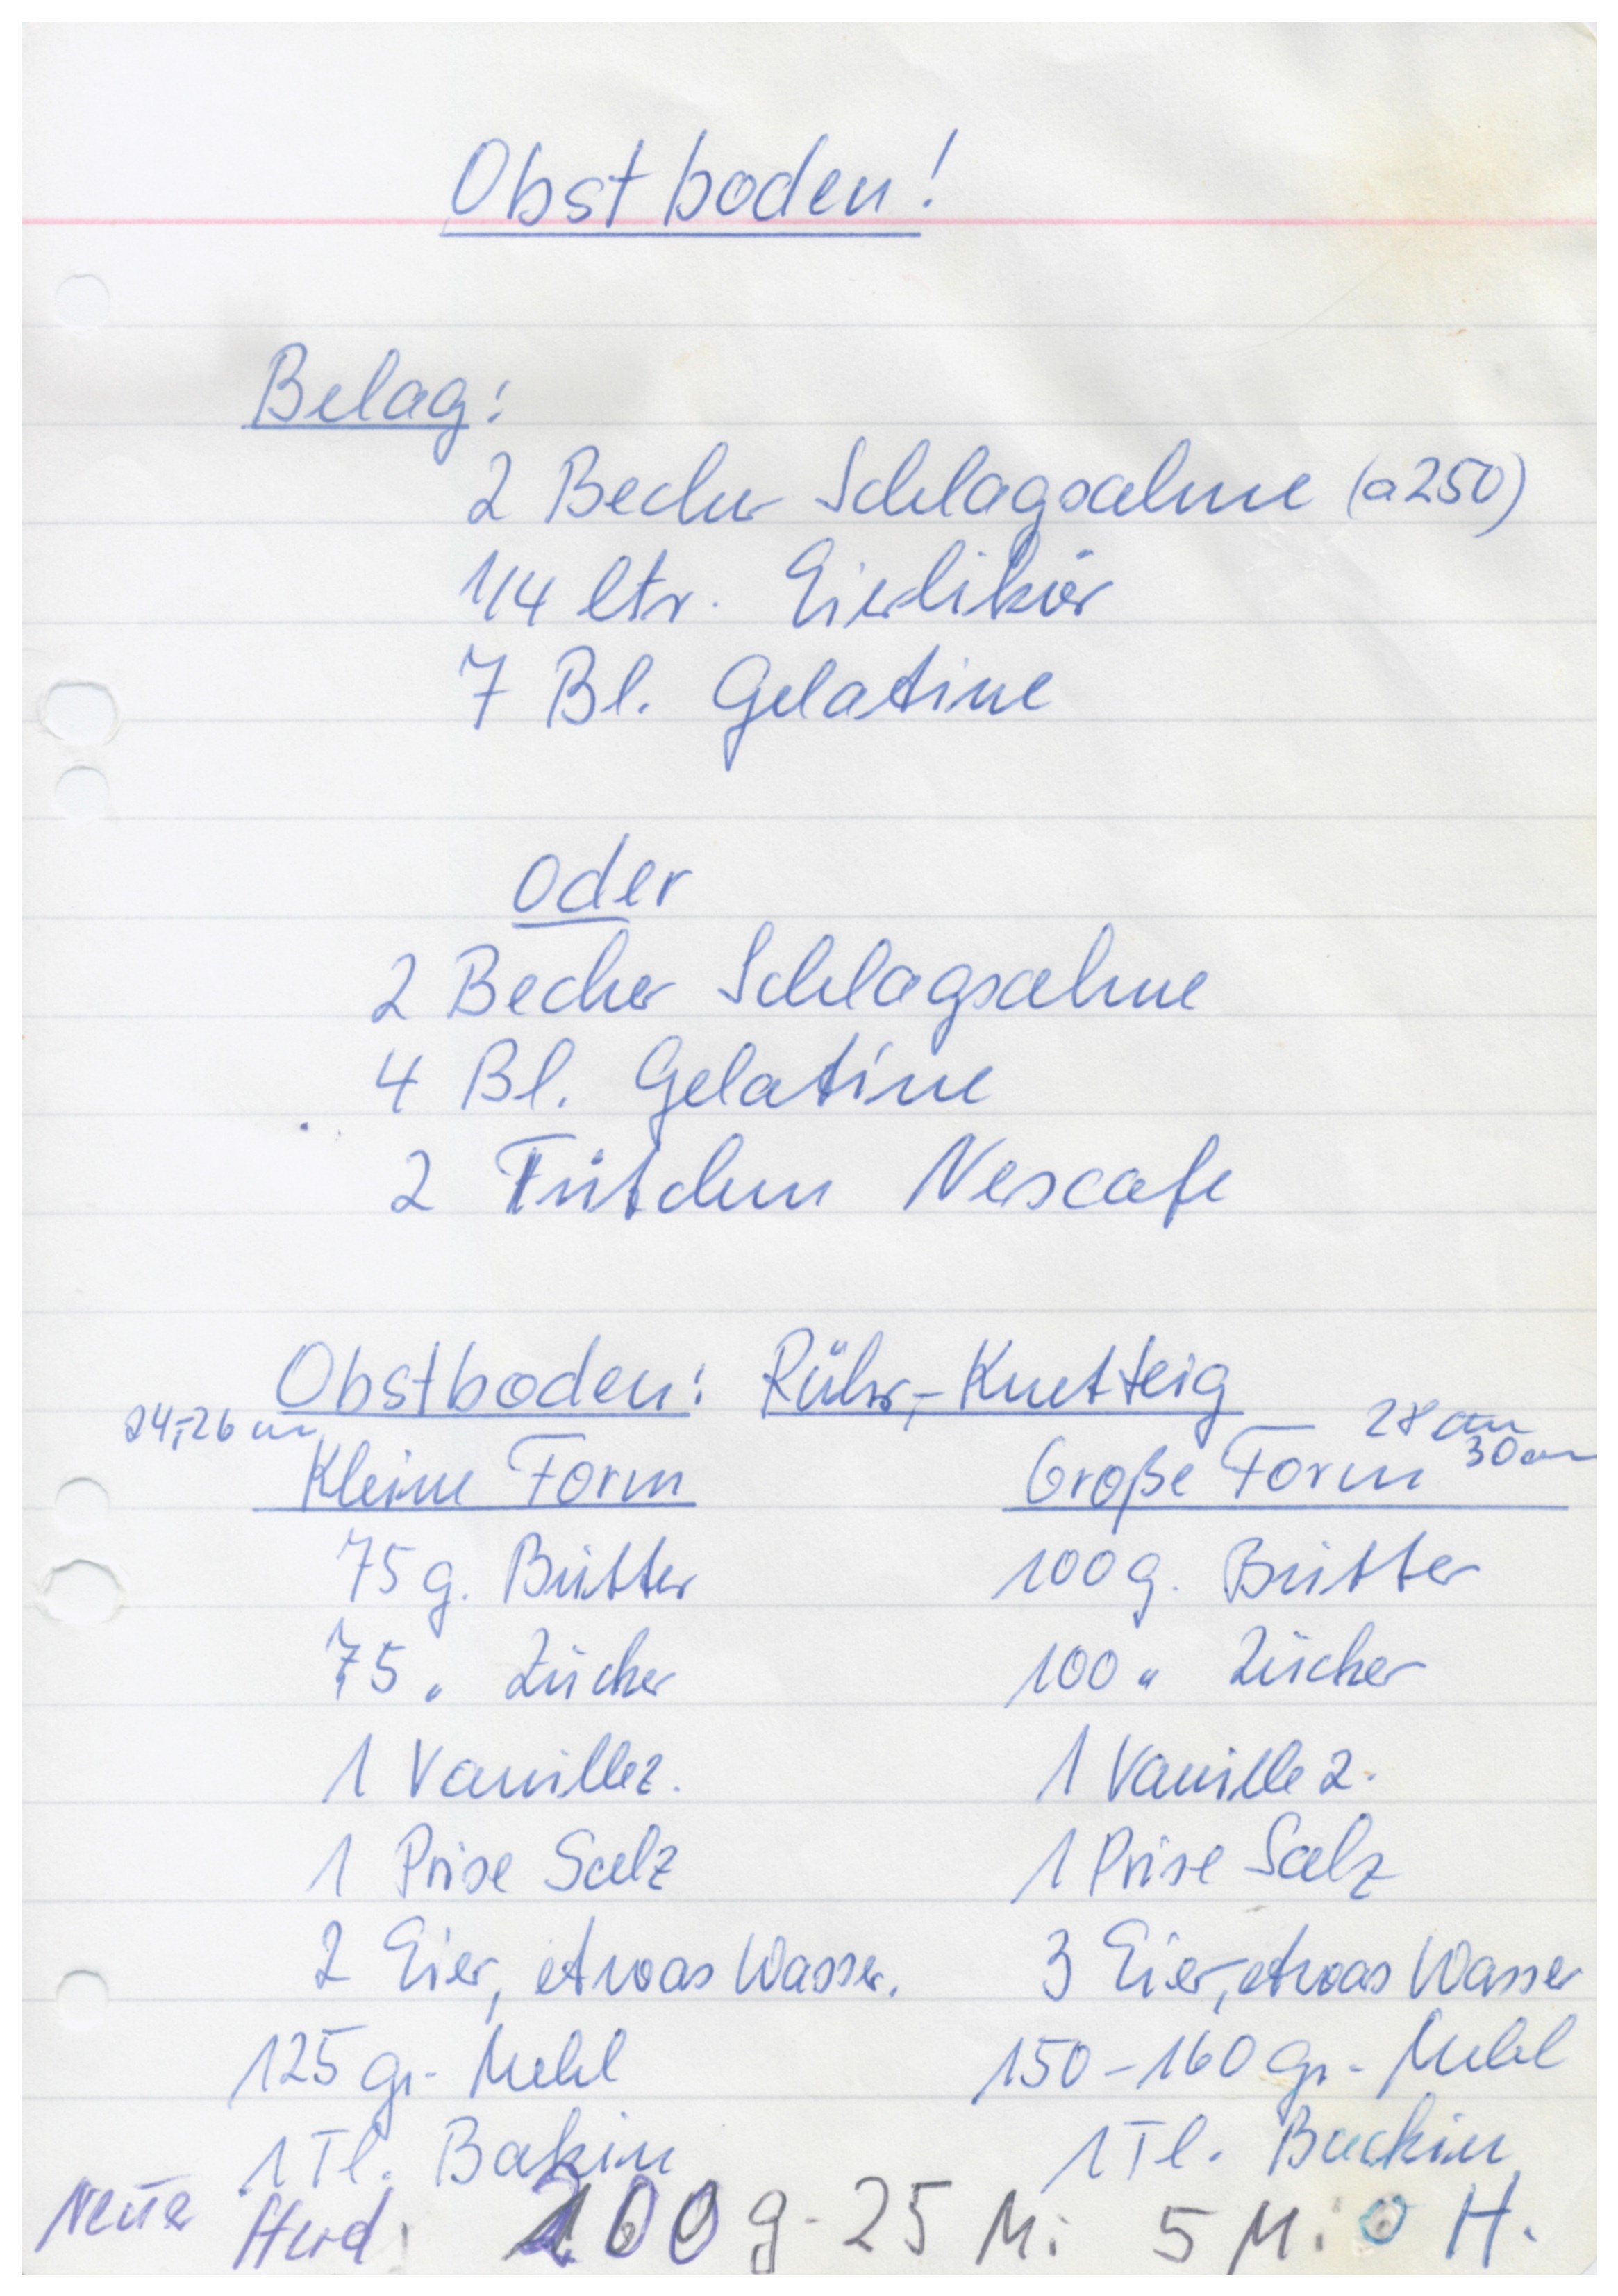 Obstboden!
Belag:
2 Becher Schlagsahne (a 250)
1/4 ltr. Eierlikör
7 Bl. Gelatine
oder
2 Becher Schlagsahne
4 Bl. Gelatine
2 Tütchen Nescafe
Obstboden: Rühr,-Knetteig
24,-26 cm 28 cm
Kleine Form Große Form 30cm
75 g. Butter 100 g. Butter
75 " Zucker 100 " Zucker
1 Vanillez. 1 Vanillez.
1 Prise Salz 1 Prise Salz
2 Eier, etwas Wasser. 3 Eier, etwas Wasser
125 gr. Mehl 150-160 gr. Mehl
1 Tl. Bakin 1 Tl. Backin
Neuer Herd: g-25 Mi 5 Mi 0 H.